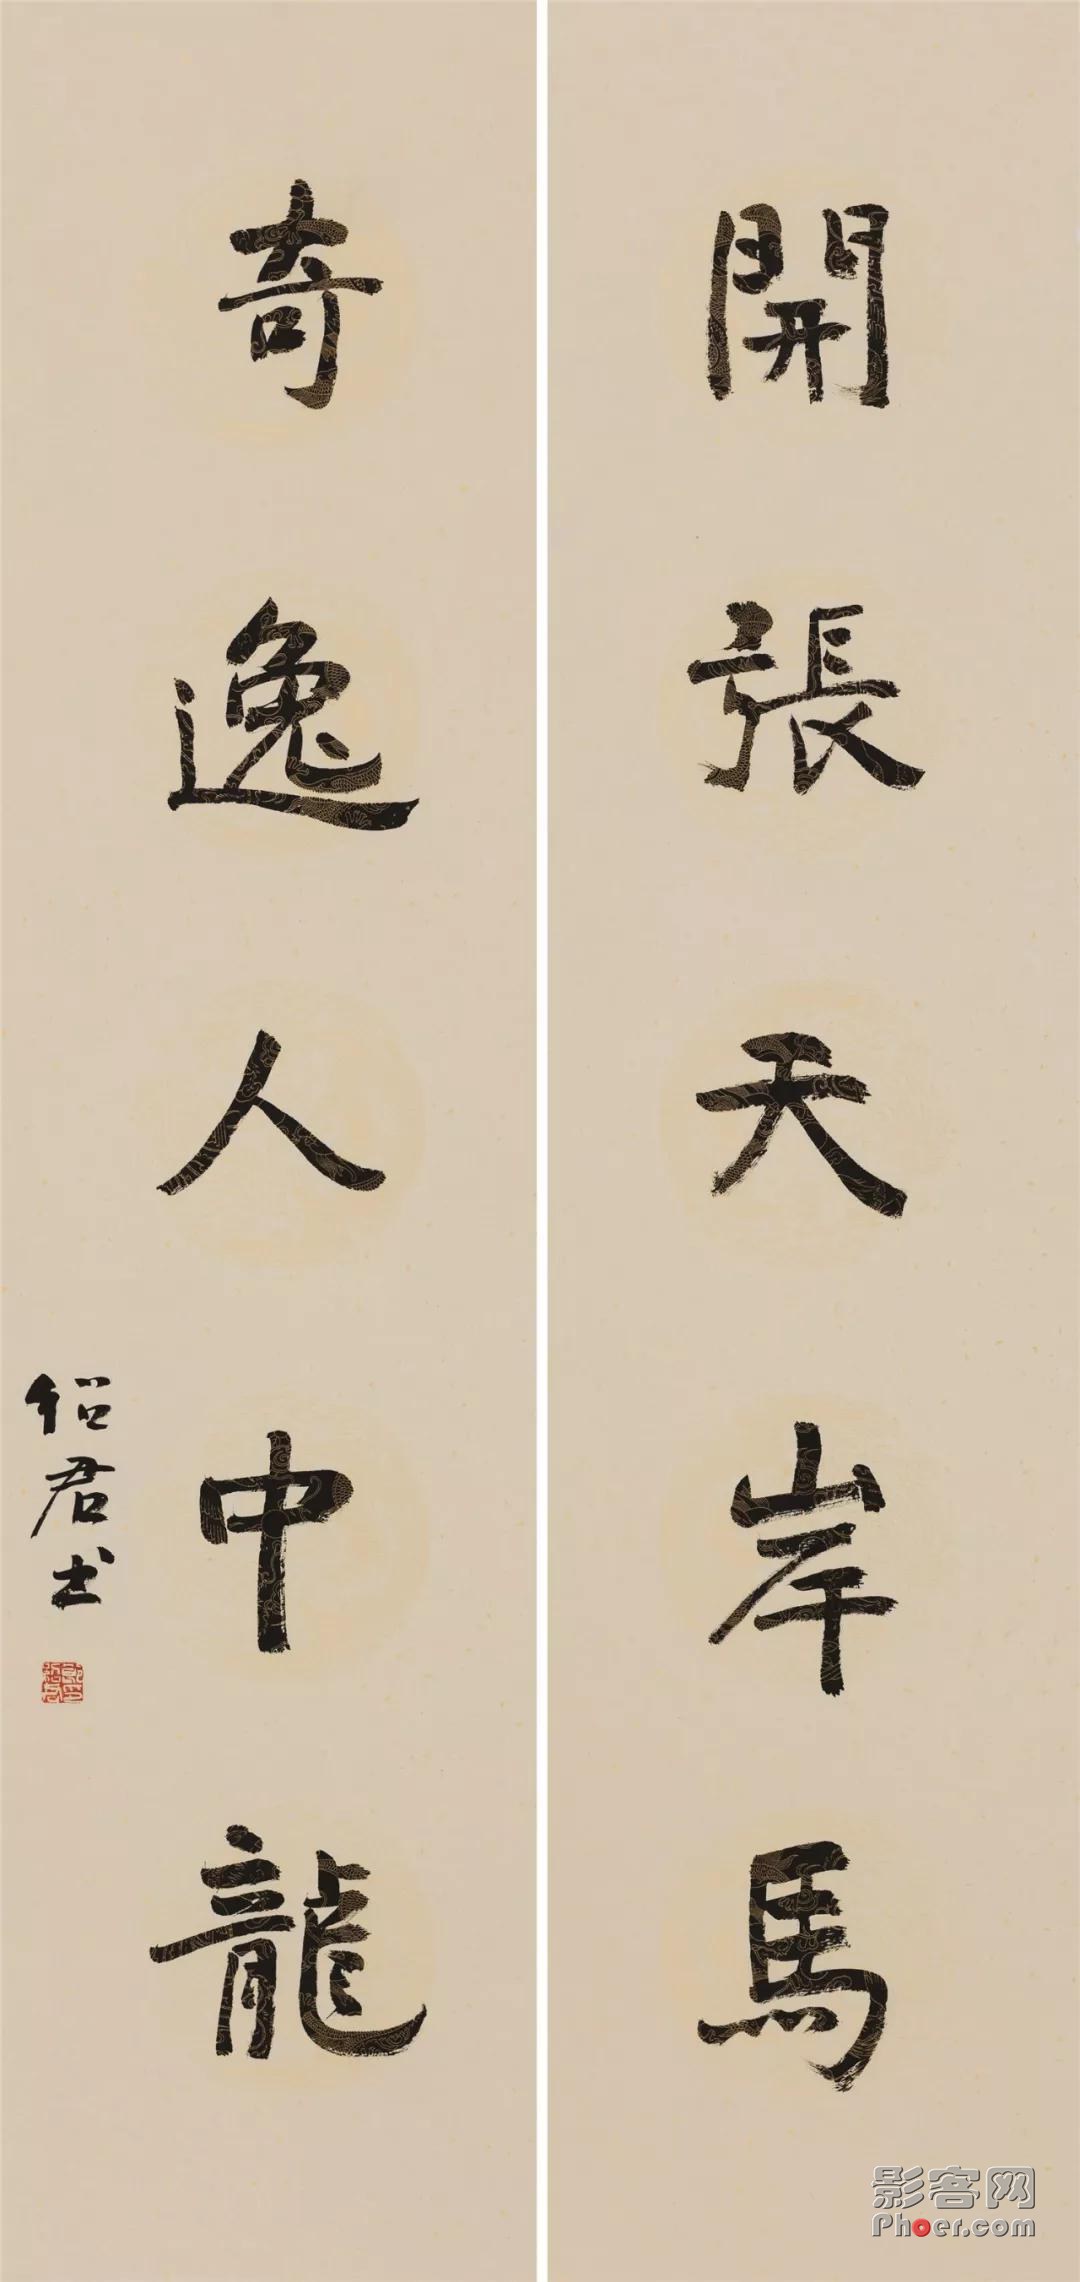 開張天岸馬
奇逸人中龍
绍君书
影客网
Phoer.com